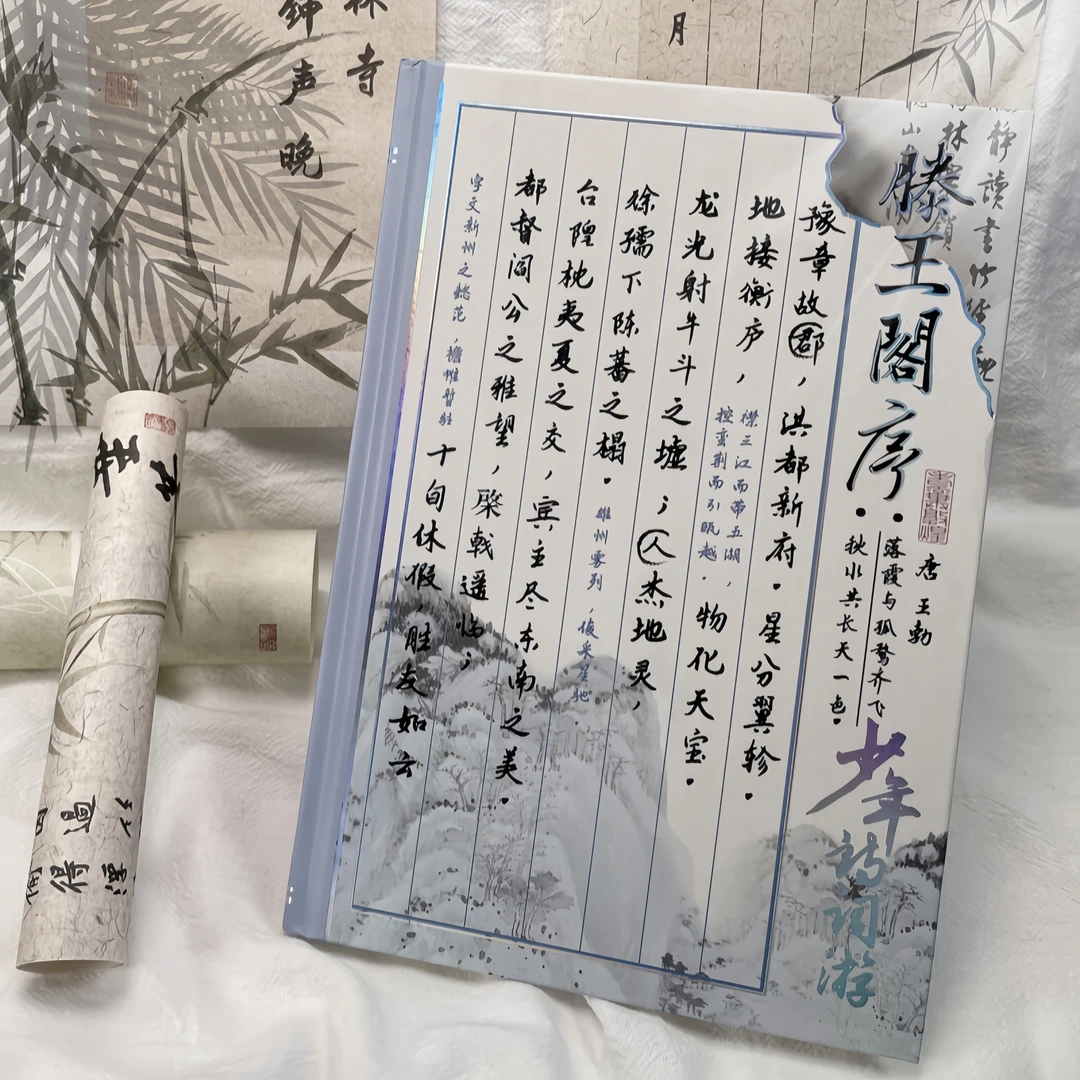 滕王閣序·
唐 王勃
落霞与孤鹜齐飞
秋水共长天一色。
少年
诗词游
豫章故郡，洪都新府。星分翼轸。
地接衡庐，襟三江而带五湖，控蛮荆而引瓯越。物化天宝。
龙光射牛斗之墟；人杰地灵，
徐孺下陈蕃之榻。雄州雾列，俊采星驰
台隍枕夷夏之交，宾主尽东南之美。
都督阎公之雅望，棨戟遥临；
宇文新州之懿范，襜帷暂驻 十旬休假，胜友如云
静讀書
林
山
月
林寺
钟声晚
得